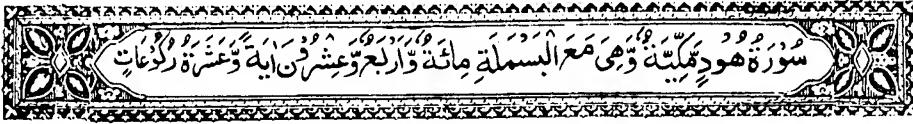 سُوْرَةُ هُوْدٍ مَّكِّيَّةٌ وَّهِىَ مَعَ الْبَسْمَلَةِ مِائَةٌ وَّاَرْبَعٌ وَّعِشْرُوْنَ اٰيَةً وَّعَشَرَةُ رُكُوْعَاتٍ